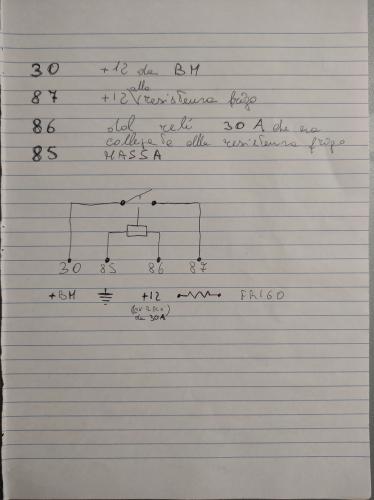 30 +12 da BM
alla
87 +12 resistenza frigo
86 dal relè 30 A che era
collegata alla resistenza frigo
85 MASSA
30 85 86 87
+BM +12 FRIGO
da 30A